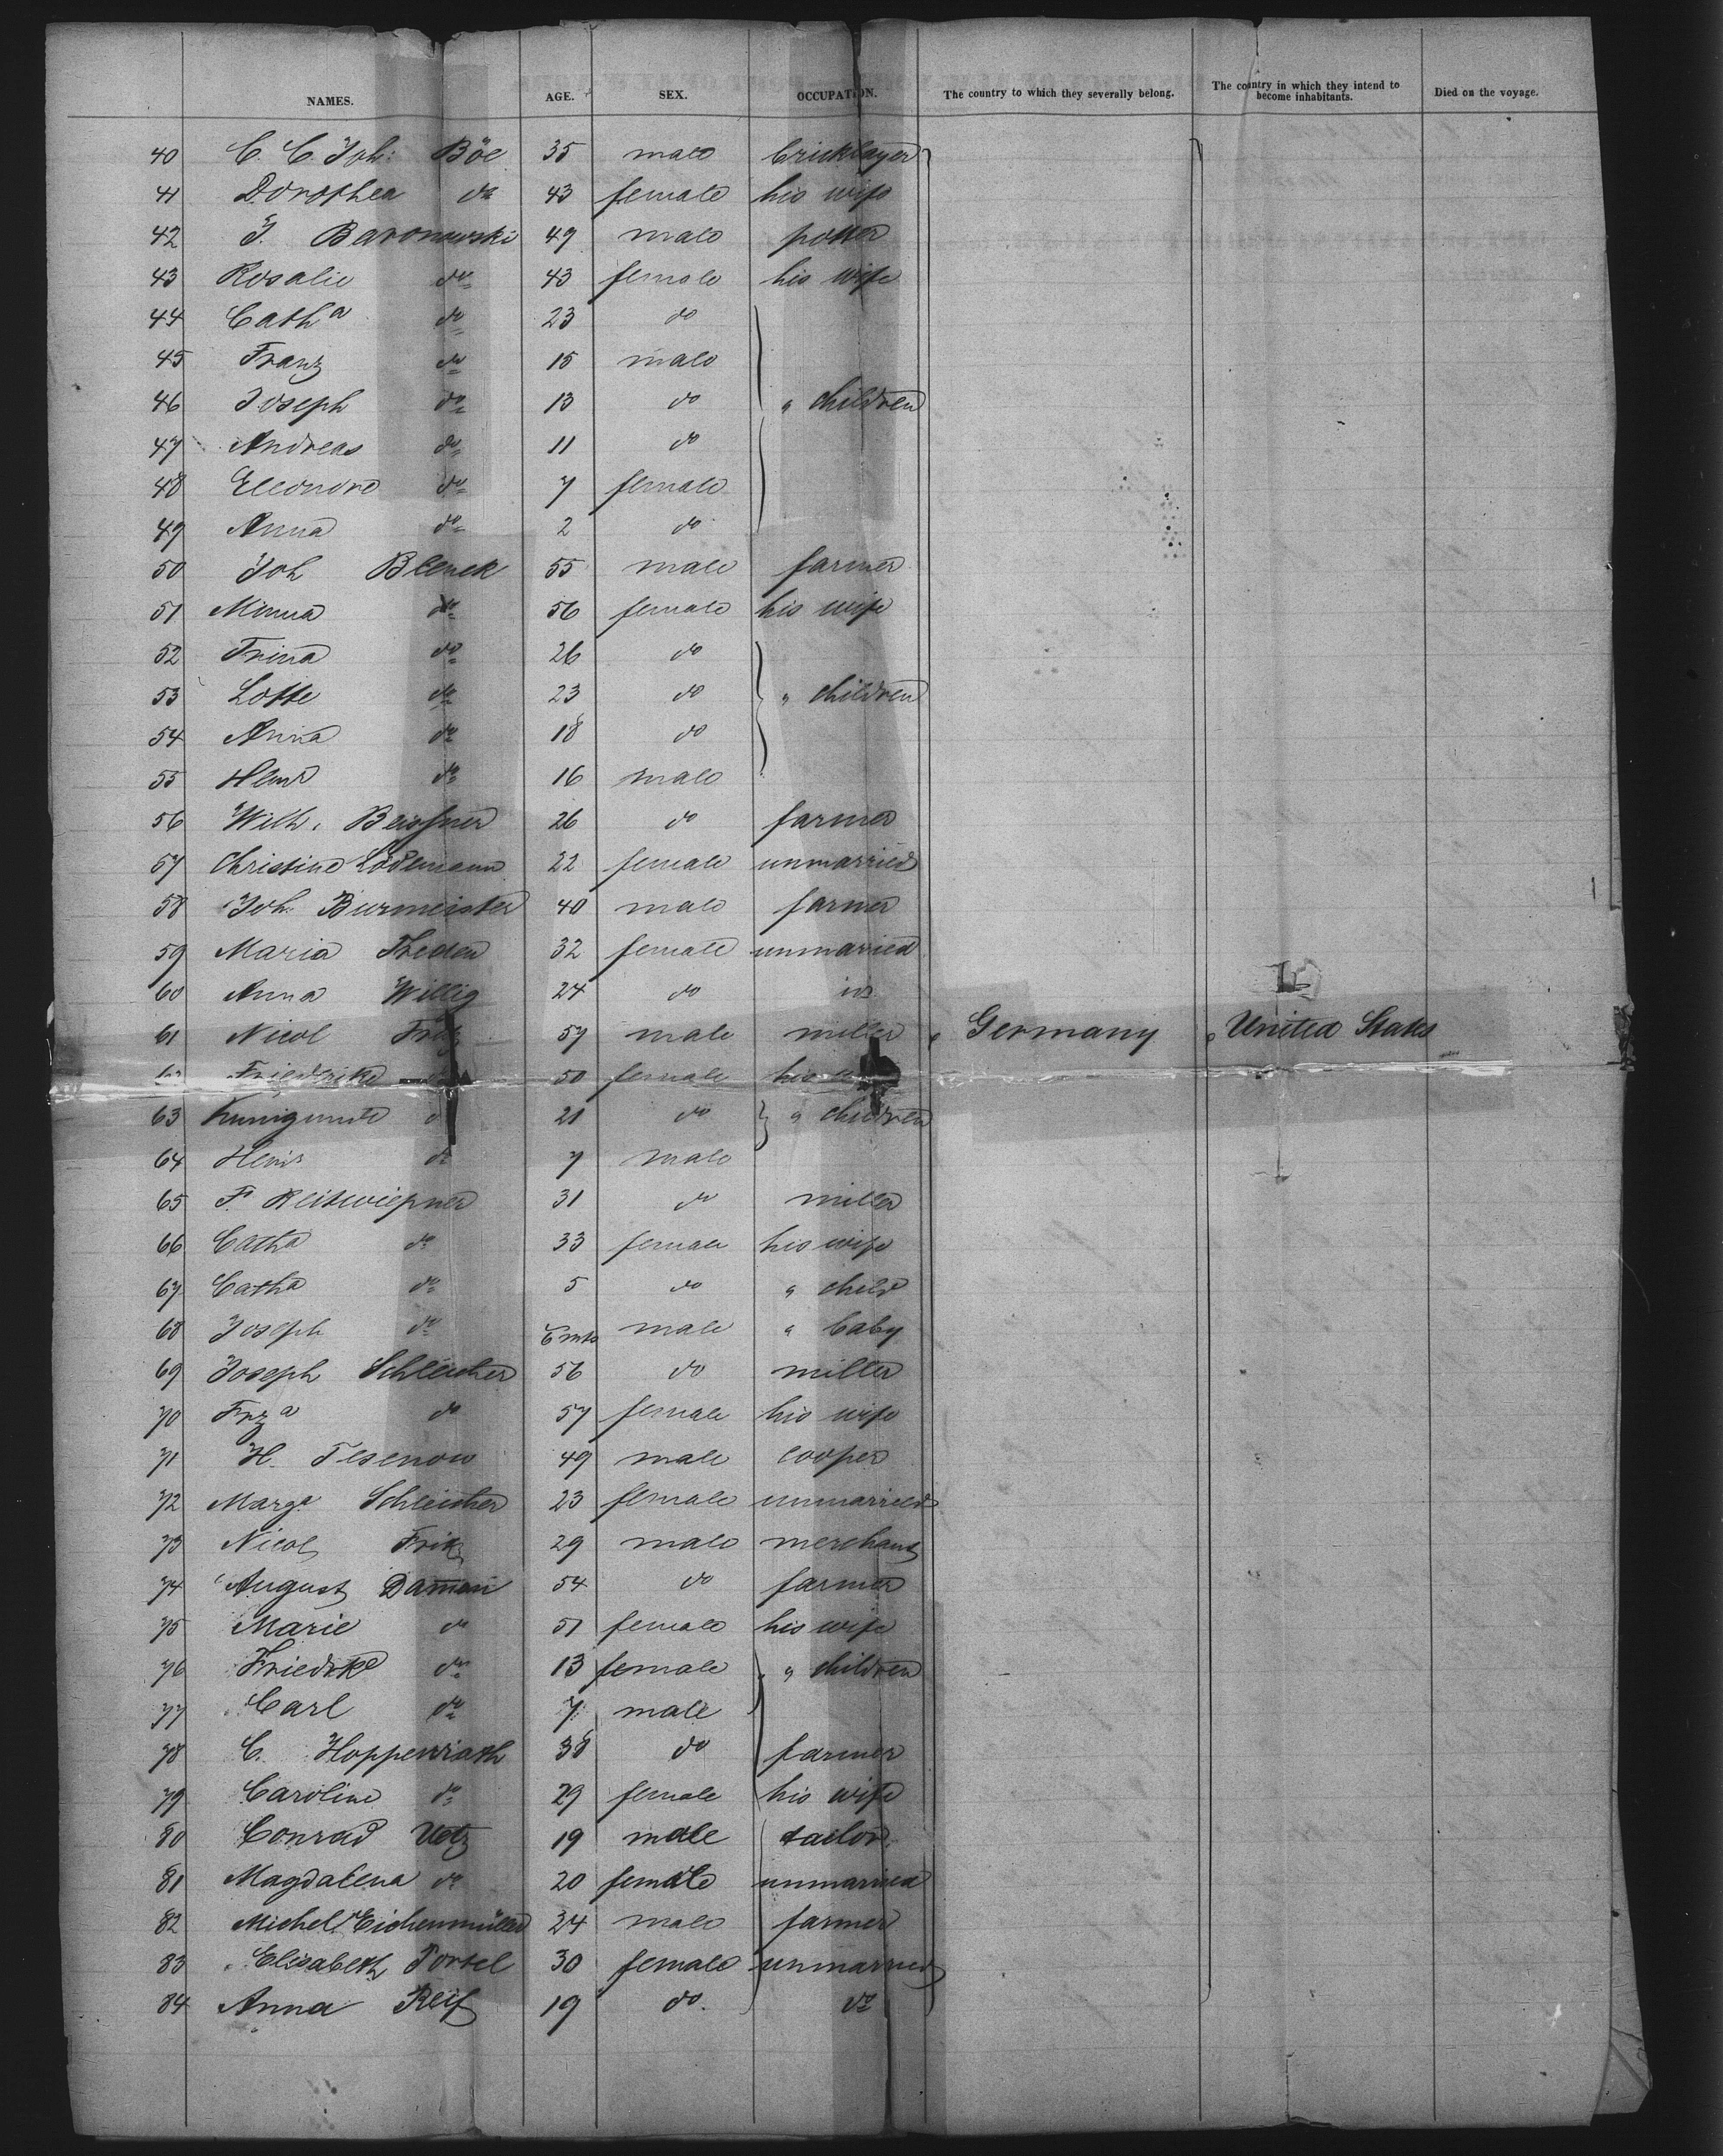 NAMES. AGE. SEX. OCCUPATION. The country to which they severally belong. The country in which they intend to become inhabitants. Died on the voyage.
40 C. C. Joh: Böe 35 male bricklayer
41 Dorothea do 43 female his wife
42 J. Baronowski 49 male potter
43 Rosalie do 43 female his wife
44 Cath a do 23 do
45 Franz do 15 male
46 Joseph do 13 do " children
47 Andreas do 11 do
48 Eleonore do 7 female
49 Anna do 2 do
50 Joh Blenck 55 male farmer
51 Minna do 56 female his wife
52 Trina do 26 do
53 Lotte do 23 do " children
54 Anna do 18 do
55 do 16 male
56 Wilh. 26 do farmer
57 Christine Lödemann 22 female unmarried
58 Joh. Burmeister 40 male farmer
59 Maria Theden 32 female unmarried
60 Anna Willig 24 do
61 Nicol 57 male miller " Germany " United States
Friedrike 50 female his
63 Kunigunde 21 do " children
64 do 7 male
65 F. 31 do miller
66 Catha do 33 female his wife
67 Catha do 5 do " child
68 Joseph do male " baby
69 Joseph Schleicher 56 do miller
70 Frz a do 57 female his wife
71 H. Tesenow 49 male cooper
72 Marga Schleicher 23 female unmarried
73 Nicol 29 male merchant
74 August Daman 54 do farmer
75 Marie do 51 female his wife
76 Friedrke do 13 female " children
77 Carl do 7 male
78 C. Hoppenrath 38 do farmer
79 Caroline do 29 female his wife
80 Conrad Uotz 19 male tailor
81 Magdalena do 20 female unmarried
82 Michel Eichenmüller 24 male farmer
83 Elisabeth Portel 30 female unmarried
84 Anna Reif 19 do. do